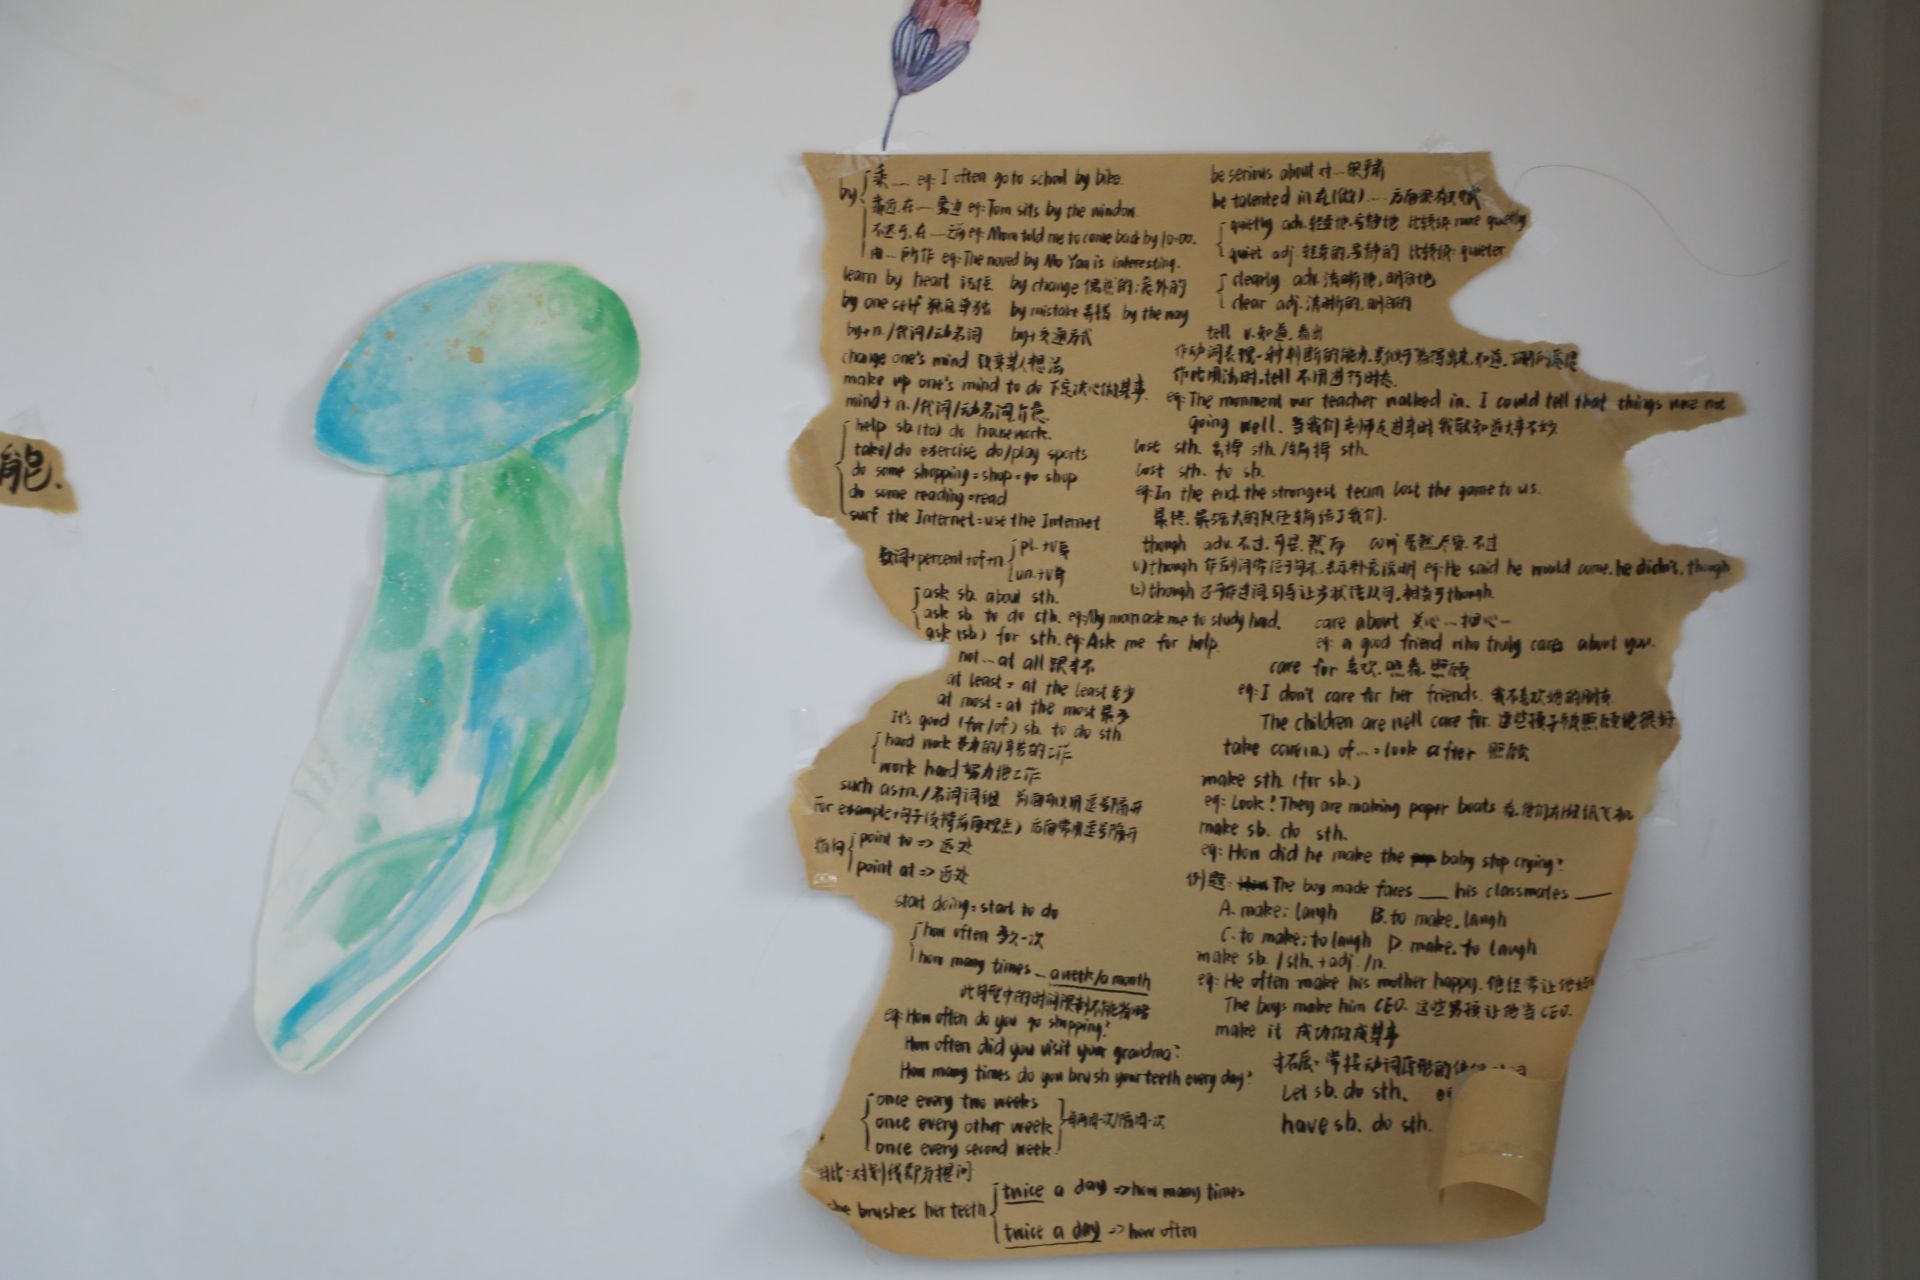 能.
by
乘…… eg: I often go to school by bike.
靠近,在……旁边 eg:Tom sits by the window.
不迟于,在……之前 eg:Mom told me to come back by 10:00.
由……所作 eg:The novel by Mo Yan is interesting.
learn by heart 记住 by change 偶然的;意外的
by one self 独自单独 by mistake 弄错 by the way
by+n./代词/动名词 by+交通方式
change one's mind 改变某人想法
make up one's mind to do 下定决心做某事.
mind+n./代词/动名词 介意
help sb (to) do housework.
take/do exercise do/play sports
do some shopping=shop=go shop
do some reading=read
surf the Internet=use the Internet
数词+percent+of+n
pl.+v
un.+v
ask sb. about sth.
ask sb. to do sth. eg:My mom ask me to study hard.
ask (sb) for sth. eg:Ask me for help.
not…at all 跟本不
at least = at the least 至少
at most = at the most 最多
It's good (for/of) sb. to do sth
hard work 努力的/辛苦的工作
work hard 努力地工作
such as+n./名词词组 前面可以用逗号隔开
For example+句子(支撑前面观点) 后面常用逗号隔开
指向
point to => 远处
point at => 近处
start doing=start to do
how often 多久一次
how many times … a week/a month
此句型中的时间限制不能省略
eg:How often do you go shopping?
How often did you visit your grandma?
How many times do you brush your teeth every day?
once every two weeks
once every other week
once every second week.
每两周一次/隔周一次
对比:对划线部分提问
she brushes her teeth
twice a day => how many times
twice a day => how often
be serious about 对…很严肃
be talented in 在(做)……方面很有天赋
quietly adv.轻声地,安静地 比较级 more quietly
quiet adj.轻声的,安静的 比较级:quieter
clearly adv.清晰地,明白地
clear adj.清晰的,明白的
tell v.知道,看出
作此用法时,tell 不用进行时态.
eg:The momment our teacher walked in. I could tell that things were not
going well. 当我们老师走进来时我就知道大事不妙
lost sth. 丢掉 sth./输掉 sth.
lost sth. to sb.
eg:In the end, the strongest team lost the game to us.
最终,最强大的队伍输给了我们.
though adv.不过,可是,然而 conj 虽然,尽管,不过
(1)though 作副词常位于句末,表示补充说明 eg:He said he would come, he didn't, though
(2)though 还可作连词引导让步状语从句,相当于though.
care about 关心…担心…
eg: a good friend who truly cares about you.
care for 喜欢,照看,照顾
eg:I don't care for her friends. 我不喜欢她的朋友
The children are well care for. 这些孩子被照顾地很好
take care(n.) of … = look after 照顾
make sth. (for sb.)
eg: Look! They are making paper boats 看,他们在做纸飞机
make sb. do sth.
eg: How did he make the baby stop crying?
例题: The boy made faces ___ his classmates ___
A. make; laugh B. to make, laugh
C. to make; to laugh D. make, to laugh
make sb./sth.+adj./n.
eg: He often make his mother happy. 他经常让他妈
The boys make him CEO. 这些男孩让他当CEO.
make it 成功做成某事
拓展:常接动词原形的
Let sb. do sth.
have sb. do sth.